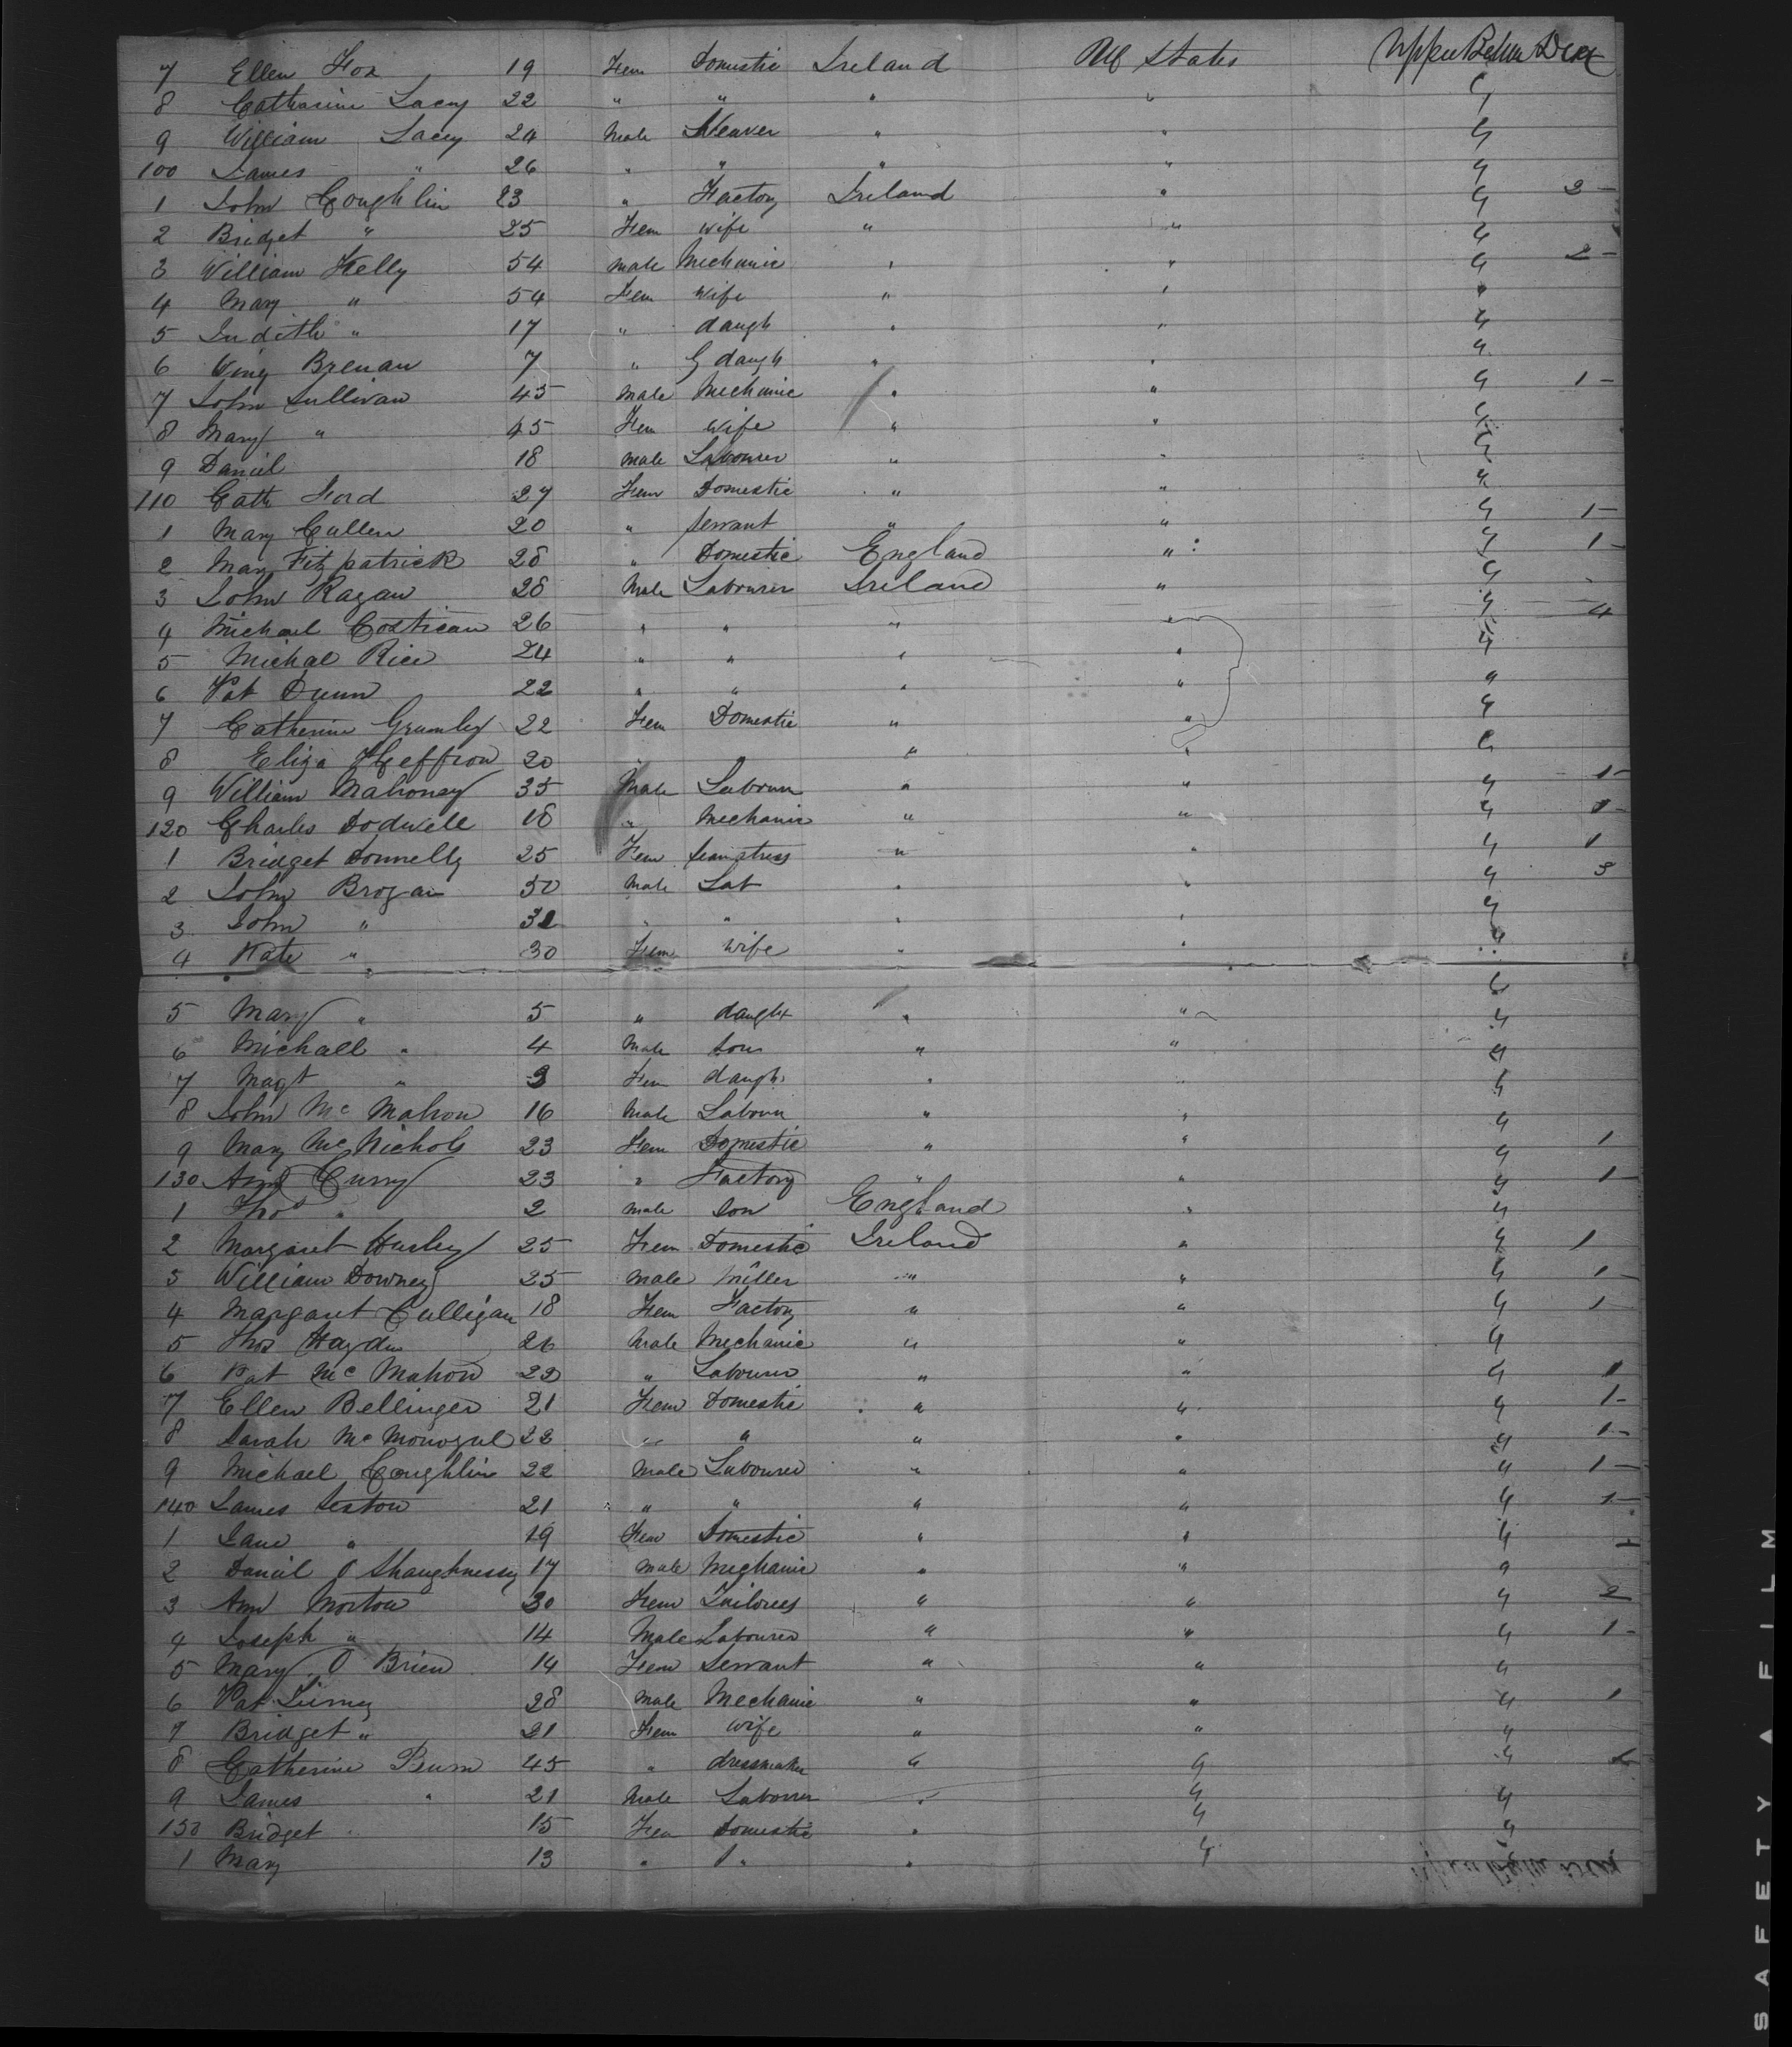 7 Ellen Fox 19 Fem Domestic Ireland U States Upper Betw Deck
8 Catharine Lacey 22 " " " " "
9 William Lacey 24 Male Weaver " " "
100 James " 26 " " " " "
1 John Coughlin 23 " Factory Ireland " " 2 -
2 Bridget " 25 Fem wife " " "
3 William Kelly 54 male Mechanic " " " 2 -
4 Mary " 54 Fem Wife " " "
5 Judith " 17 " daugh " " "
6 Brenan 7 " G daugh " " "
7 John Sullivan 45 Male Mechanic " " " 1 -
8 Mary " 45 Fem Wife " " "
9 Daniel 18 male Labourer " " "
110 Cath Ford 27 Fem Domestic " " "
1 Mary Cullen 20 " servant " " " 1 -
2 Mary Fitzpatrick 28 " Domestic England " " 1 -
3 John Ragan 28 Male Labourer Ireland " "
4 Michael Costican 26 " " " " " 4
5 Michal Rice 24 " " " " "
6 Pat Dunn 22 " " " " "
7 Catherine Grumley 22 Fem Domestic " " "
8 Eliza Heffron 20 " " "
9 William Mahoney 35 Male Labour " " " 1 -
120 Charles Dodwell 18 " Mechanic " " " 1 -
1 Bridget Donnelly 25 Fem seamstress " " " 1
2 John Brogan 50 Male Lab " " " 3
3 John " 32 " " " " "
4 Kate " 30 Fem Wife " " "
5 Mary " 5 " daught " " "
6 Michael " 4 Male son " " "
7 Magt " 3 Fem daugh " " "
8 John Mc Mahon 16 Male Labour " " "
9 Mary McNichols 23 Fem Domestic " " " 1
130 Ann Curry 23 " Factory " " " 1 -
1 Thos " 2 male Son England " "
2 Margaret Hurley 25 Fem Domestic Ireland " " 1
3 William Downey 25 Male Miller " " " 1 -
4 Margaret Culligan 18 Fem Factory " " " 1
5 Thos Hayden 26 Male Mechanic " " "
6 Pat Mc Mahon 22 " Labourer " " " 1
7 Ellen Bellinger 21 Fem Domestic " " " 1 -
8 Sarah Mc Monogul 22 " " " " " 1 -
9 Michael Coughlin 22 Male Labourer " " " 1 -
140 James Sexton 21 " " " " " 1 -
1 Jane " 19 Fem Domestic " " "
2 Daniel O Shaughnessy 17 Male Mechanic " " " 1
3 Ann Morton 30 Fem Tailoress " " " 2
4 Joseph " 14 Male Labourer " " " 1 -
5 Mary O Brien 14 Fem Servant " " "
6 Pat 28 Male Mechanic " " " 1
7 Bridget " 21 Fem Wife " " "
8 Catherine 45 " dressmaker " " "
9 James " 21 Male Labourer " " "
150 Bridget 15 Fem Domestic " " "
1 Mary 13 " " " "
SAFETY ▲ FILM